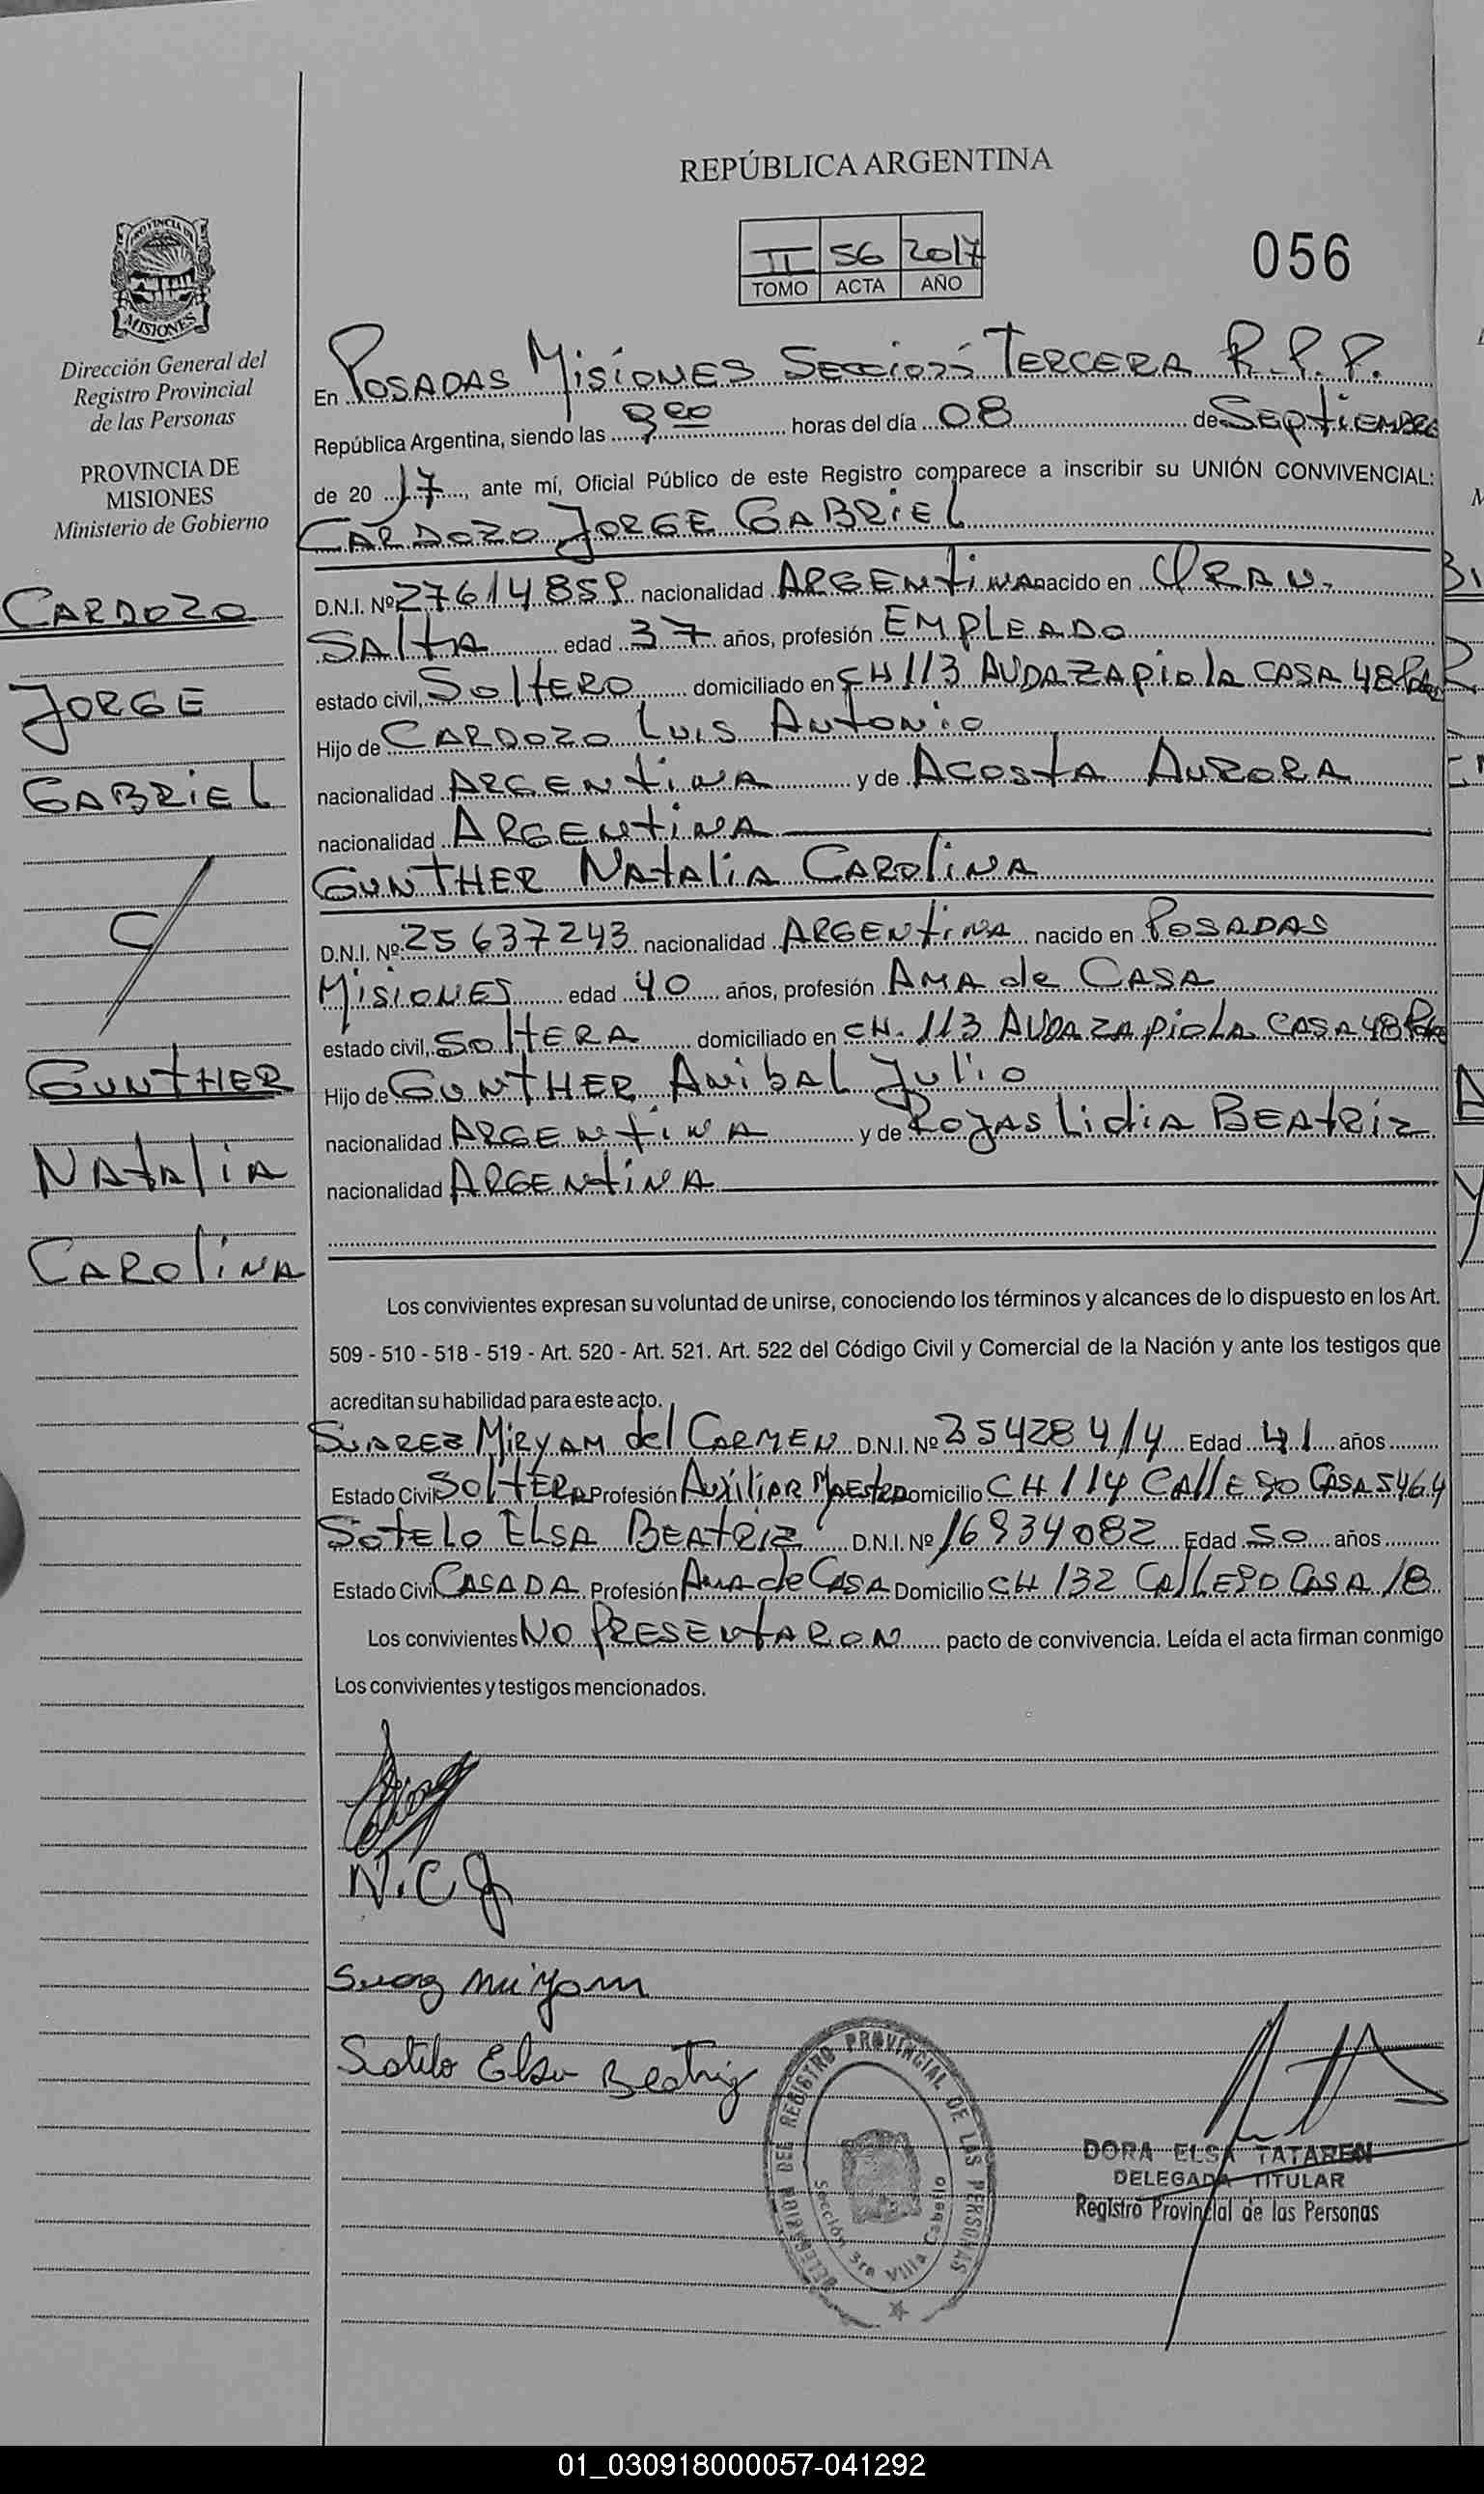 REPÚBLICA ARGENTINA
II 56 2017
TOMO ACTA AÑO
056
PROVINCIA DE
MISIONES
Dirección General del
Registro Provincial
de las Personas
PROVINCIA DE
MISIONES
Ministerio de Gobierno
CARDOZO
JORGE
GABRIEL
C/
GUNTHER
NATALIA
CAROLINA
En POSADAS MISIONES SECCION TERCERA R.P.P.
República Argentina, siendo las 9 00 horas del día 08 de SEPTIEMBRE
de 20 17, ante mí, Oficial Público de este Registro comparece a inscribir su UNIÓN CONVIVENCIAL:
CARDOZO JORGE GABRIEL
D.N.I. Nº 27614859 nacionalidad ARGENTINA nacido en ORAN.
SALTA edad 37 años, profesión EMPLEADO
estado civil, SOLTERO domiciliado en CH 113 AVDA ZAPIOLA CASA 48
Hijo de CARDOZO LUIS ANTONIO
nacionalidad ARGENTINA y de ACOSTA AURORA
nacionalidad ARGENTINA
GUNTHER NATALIA CAROLINA
D.N.I. Nº 25637243 nacionalidad ARGENTINA nacido en POSADAS
MISIONES edad 40 años, profesión AMA de CASA
estado civil, SOLTERA domiciliado en CH. 113 AVDA ZAPIOLA CASA 48
Hijo de GUNTHER ANIBAL JULIO
nacionalidad ARGENTINA y de ROJAS LIDIA BEATRIZ
nacionalidad ARGENTINA
Los convivientes expresan su voluntad de unirse, conociendo los términos y alcances de lo dispuesto en los Art.
509 - 510 - 518 - 519 - Art. 520 - Art. 521. Art. 522 del Código Civil y Comercial de la Nación y ante los testigos que
acreditan su habilidad para este acto.
SUAREZ MIRYAM del CARMEN D.N.I. Nº 25428414 Edad 41 años
Estado Civil SOLTERA Profesión AUXILIAR MAESTRA Domicilio CH 114 CALLE 90 CASA 5464
SOTELO ELSA BEATRIZ D.N.I. Nº 16934082 Edad 50 años
Estado Civil CASADA Profesión Ama de CASA Domicilio CH 132 CALLE CASA 18
Los convivientes NO PRESENTARON pacto de convivencia. Leída el acta firman conmigo
Los convivientes y testigos mencionados.
N.C.G
Suarez Miryam
Sotelo Elsa Beatriz
DELEGACION DEL REGISTRO PROVINCIAL DE LAS PERSONAS
Sección 3ra Villa Cabello
DORA ELSA TATAREN
DELEGADA TITULAR
Registro Provincial de las Personas
01_030918000057-041292